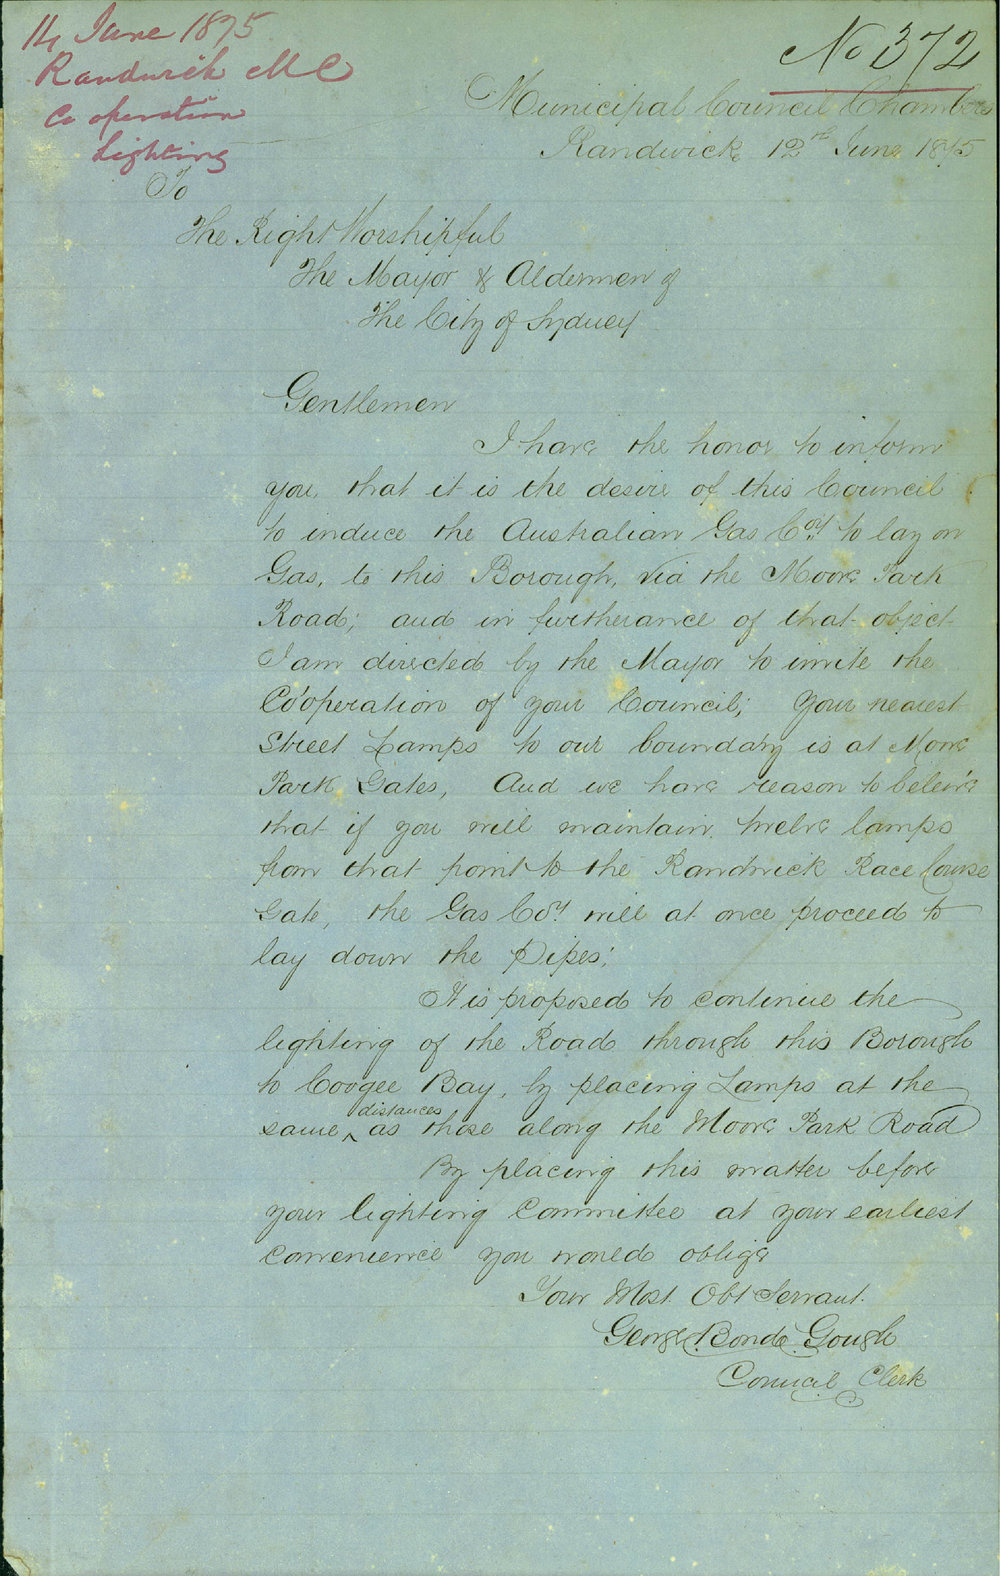 14 June 1875
Randwick M C
Co operation
Lighting
No 372
Municipal Council Chambers
Randwick 12th June 1875
To
The Right Worshipful
The Mayor & Aldermen of
The City of Sydney
Gentlemen
I have the honor to inform
you, that it is the desire of this Council
to induce the Australian Gas Coy to lay on
Gas, to this Borough, via the Moore Park
Road; and in furtherance of that object
I am directed by the Mayor to invite the
Co'operation of your Council; Your nearest
Street Lamps to our boundary is at Moore
Park Gates, And we have reason to beleive
that if you will maintain twelve lamps
from that point to the Randwick Race Course
Gate, the Gas Coy will at once proceed to
lay down the Pipes;
It is proposed to continue the
lighting of the Road through this Borough
to Coogee Bay, by placing Lamps at the
same ^ distances as those along the Moore Park Road
By placing this matter before
your lighting Committee at your earliest
convenience you would oblige
Your Most Obt Servant
George Bonde Gough
Council Clerk